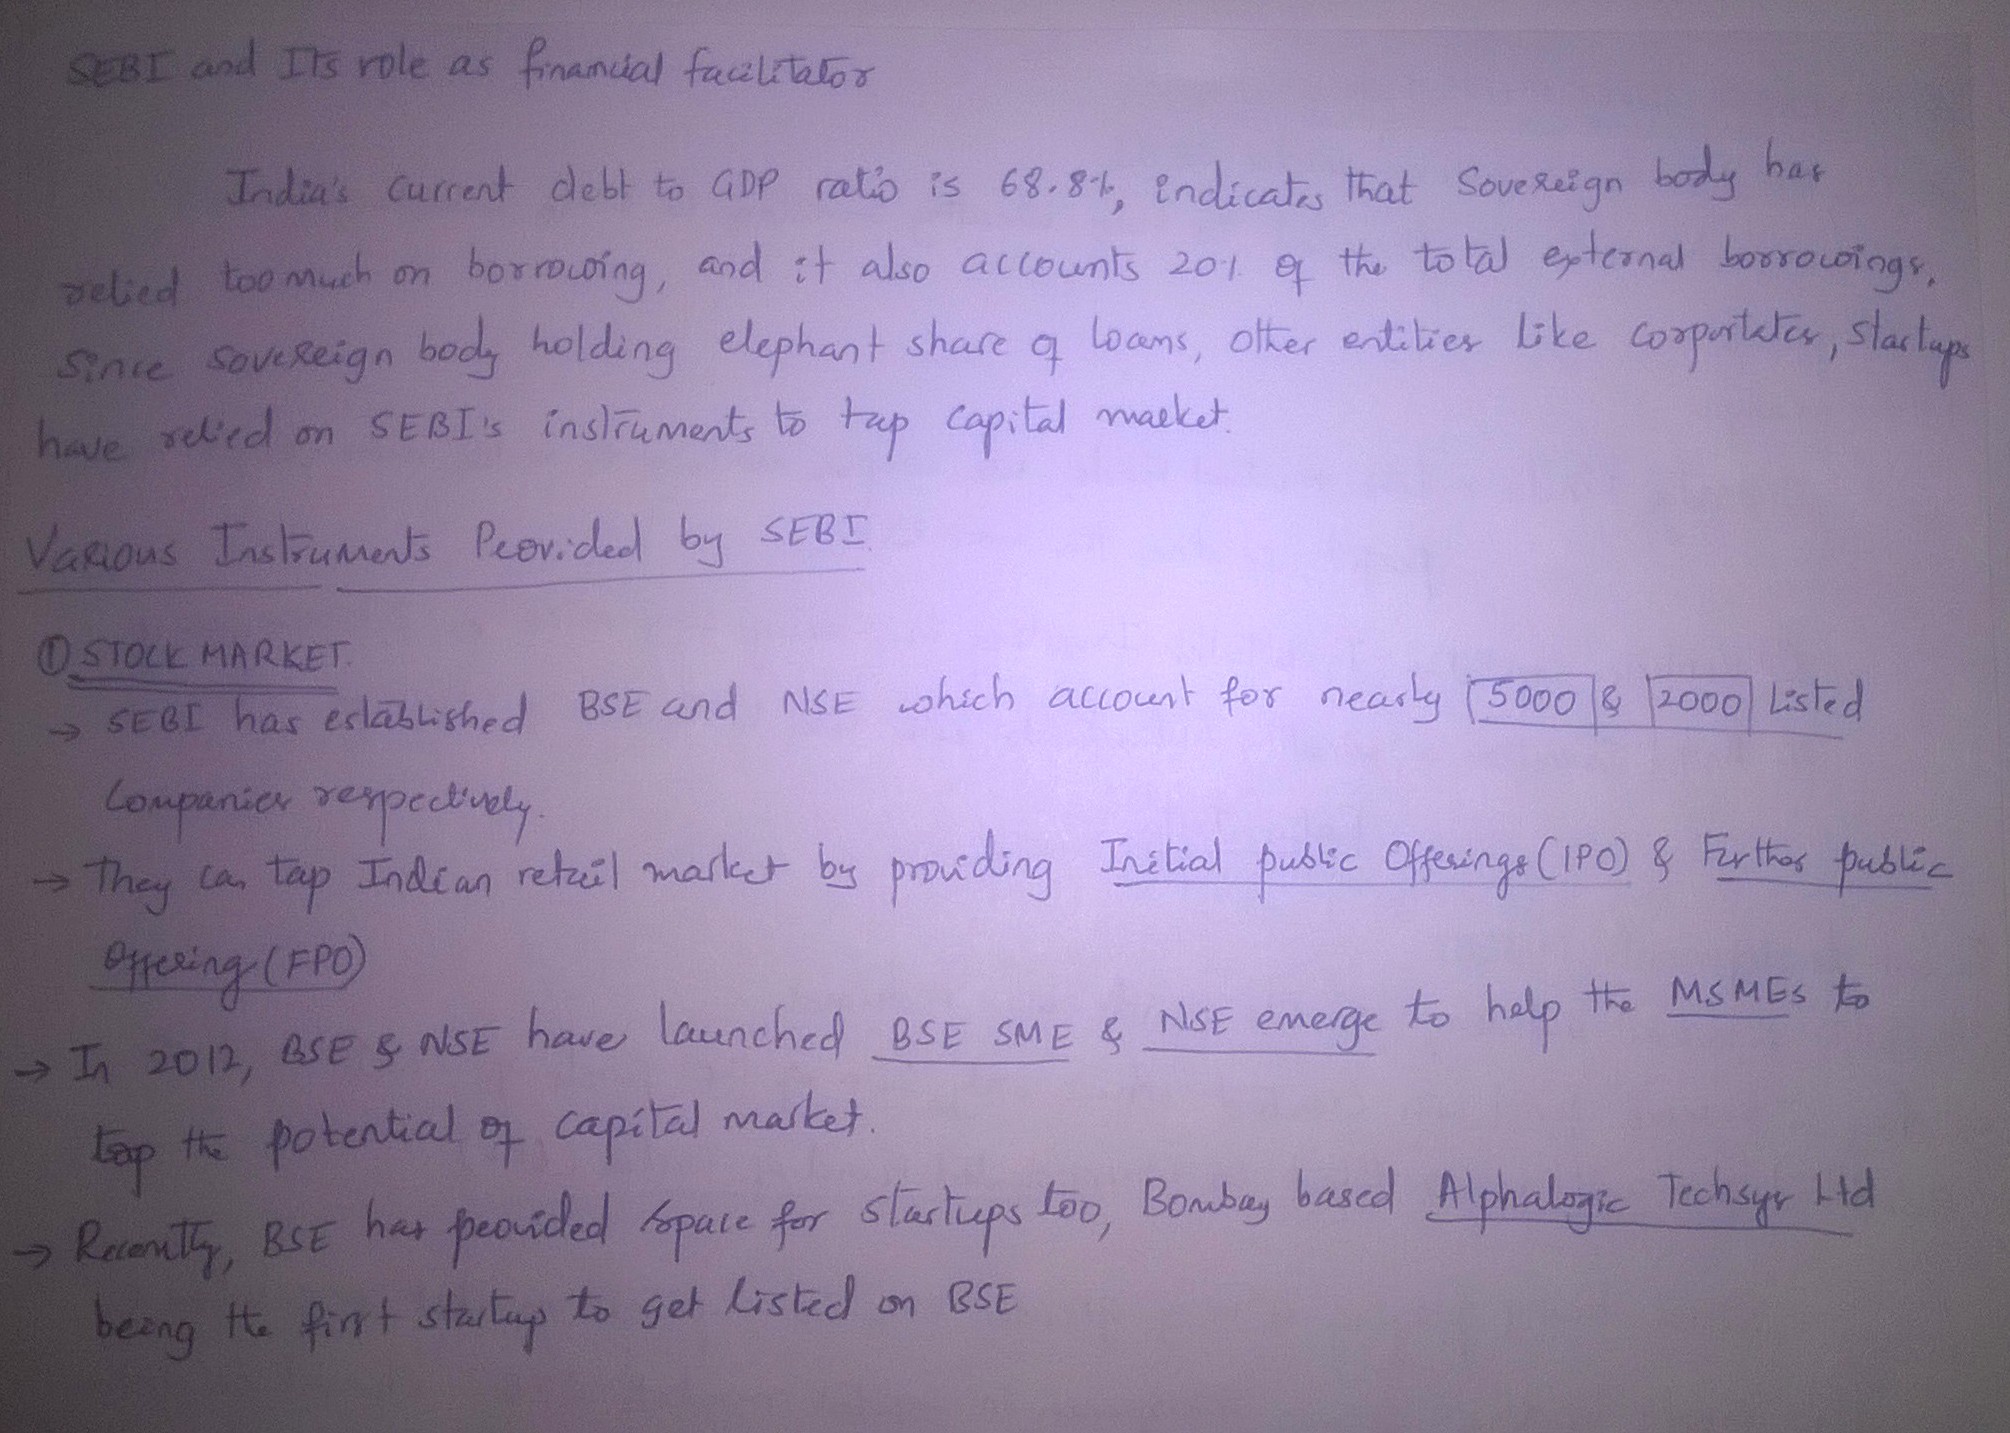 SEBI and Its role as financial facilitator
India's current debt to GDP ratio is 68.8%, indicates that Sovereign body has
relied too much on borrowing, and it also accounts 20% of the total external borrowings,
Since sovereign body holding elephant share of loans, other entities like corportates, startups
have relied on SEBI's instruments to tap capital market.
Various Instruments Provided by SEBI
① STOCK MARKET.
→ SEBI has established BSE and NSE which account for nearly 5000 & 2000 Listed
Companies respectively.
→ They can tap Indian retail market by providing Initial public Offerings (IPO) & Further public
Offering (FPO)
→ In 2012, BSE & NSE have launched BSE SME & NSE emerge to help the MSMEs to
tap the potential of capital market.
→ Recently, BSE has provided space for startups too, Bombay based Alphalogic Techsys Ltd
being the first startup to get listed on BSE